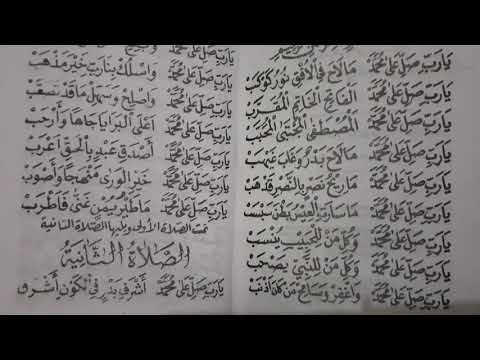 يَارَبِّ صَلِّ عَلٰى مُحَمَّدْ مَالَاحَ فِى الْاُفْقِ نُوْرُ كَوْكَبْ
يَارَبِّ صَلِّ عَلٰى مُحَمَّدْ اَلْفَاتِحِ الْخَاتِمِ الْمُقَرَّبْ
يَارَبِّ صَلِّ عَلٰى مُحَمَّدْ اَلْمُصْطَفَى الْمُجْتَبَى الْمُحَبَّبْ
يَارَبِّ صَلِّ عَلٰى مُحَمَّدْ مَالَاحَ بَدْرٌ وَغَابَ غَيْهَبْ
يَارَبِّ صَلِّ عَلٰى مُحَمَّدْ مَارِيْحُ نَصْرٍ بِالنَّصْرِ قَدْ هَبْ
يَارَبِّ صَلِّ عَلٰى مُحَمَّدْ مَاسَارَتِ الْعِيْسُ بَطْنَ سَبْسَبْ
يَارَبِّ صَلِّ عَلٰى مُحَمَّدْ وَكُلِّ مَنْ لِلْحَبِيْبِ يُنْسَبْ
يَارَبِّ صَلِّ عَلٰى مُحَمَّدْ وَكُلِّ مَنْ لِلنَّبِيِّ يَصْحَبْ
يَارَبِّ صَلِّ عَلٰى مُحَمَّدْ وَاغْفِرْ وَسَامِحْ مَنْ كَانَ اَذْنَبْ
يَارَبِّ صَلِّ عَلٰى مُحَمَّدْ وَاسْلُكْ بِنَارَبِّ خَيْرَ مَذْهَبْ
يَارَبِّ صَلِّ عَلٰى مُحَمَّدْ وَاصْلِحْ وَسَهِّلْ مَاقَدْ تَصَعَّبْ
يَارَبِّ صَلِّ عَلٰى مُحَمَّدْ اَعْلَى الْبَرَايَا جَاهًا وَاَرْحَبْ
يَارَبِّ صَلِّ عَلٰى مُحَمَّدْ اَصْدَقِ عَبْدٍ بِالْحَقِّ اَعْرَبْ
يَارَبِّ صَلِّ عَلٰى مُحَمَّدْ خَيْرِ الْوَرٰى مَنْهَجًا وَاَصْوَبْ
يَارَبِّ صَلِّ عَلٰى مُحَمَّدْ مَاطَيْرُ يُمْنٍ غَنّٰى فَاَطْرَبْ
تمت الصلاة الأولى ويليها الصلاة الثانية
اَلصَّلَاةُ الثَّانِيَةُ
يَارَبِّ صَلِّ عَلٰى مُحَمَّدْ اَشْرَفِ بَدْرٍ فِى الْكَوْنِ اَشْرَقْ